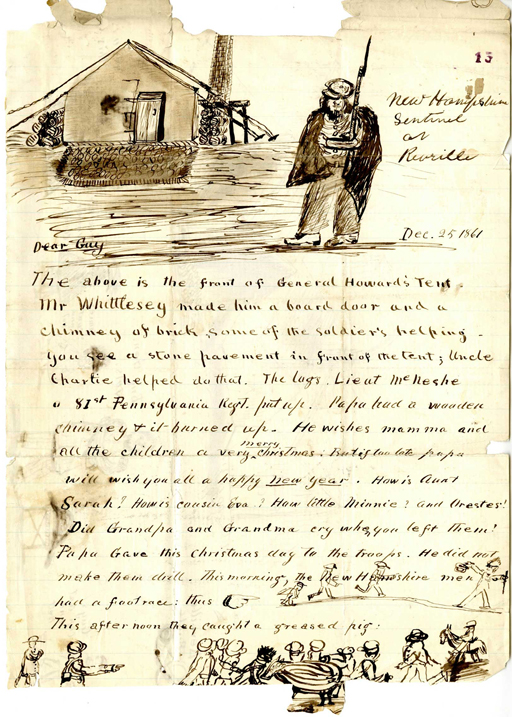 15
New Hampshire
Sentinel
at
Reveille
Dec. 25 1861
Dear Guy
The above is the front of General Howard's Tent.
Mr Whittlesey made him a board door and a
chimney of brick some of the soldier's helping -
You see a stone pavement in front of the tent; Uncle
Charlie helped do that. The logs. Lieut McNeshe
81st Pennsylvania Regt. put up. Papa had a wooden
chimney & it burned up. He wishes mamma and
all the children a very merry christmas. But if too late papa
will wish you all a happy new year. How is Aunt
Sarah? How is cousin Eva? How little Minnie? and Orestes?
Did Grandpa and Grandma cry when you left them?
Papa Gave this Christmas day to the troops. He did not
make them drill. This morning, the New Hampshire men
had a footrace: thus
This afternoon they caught a greased pig: